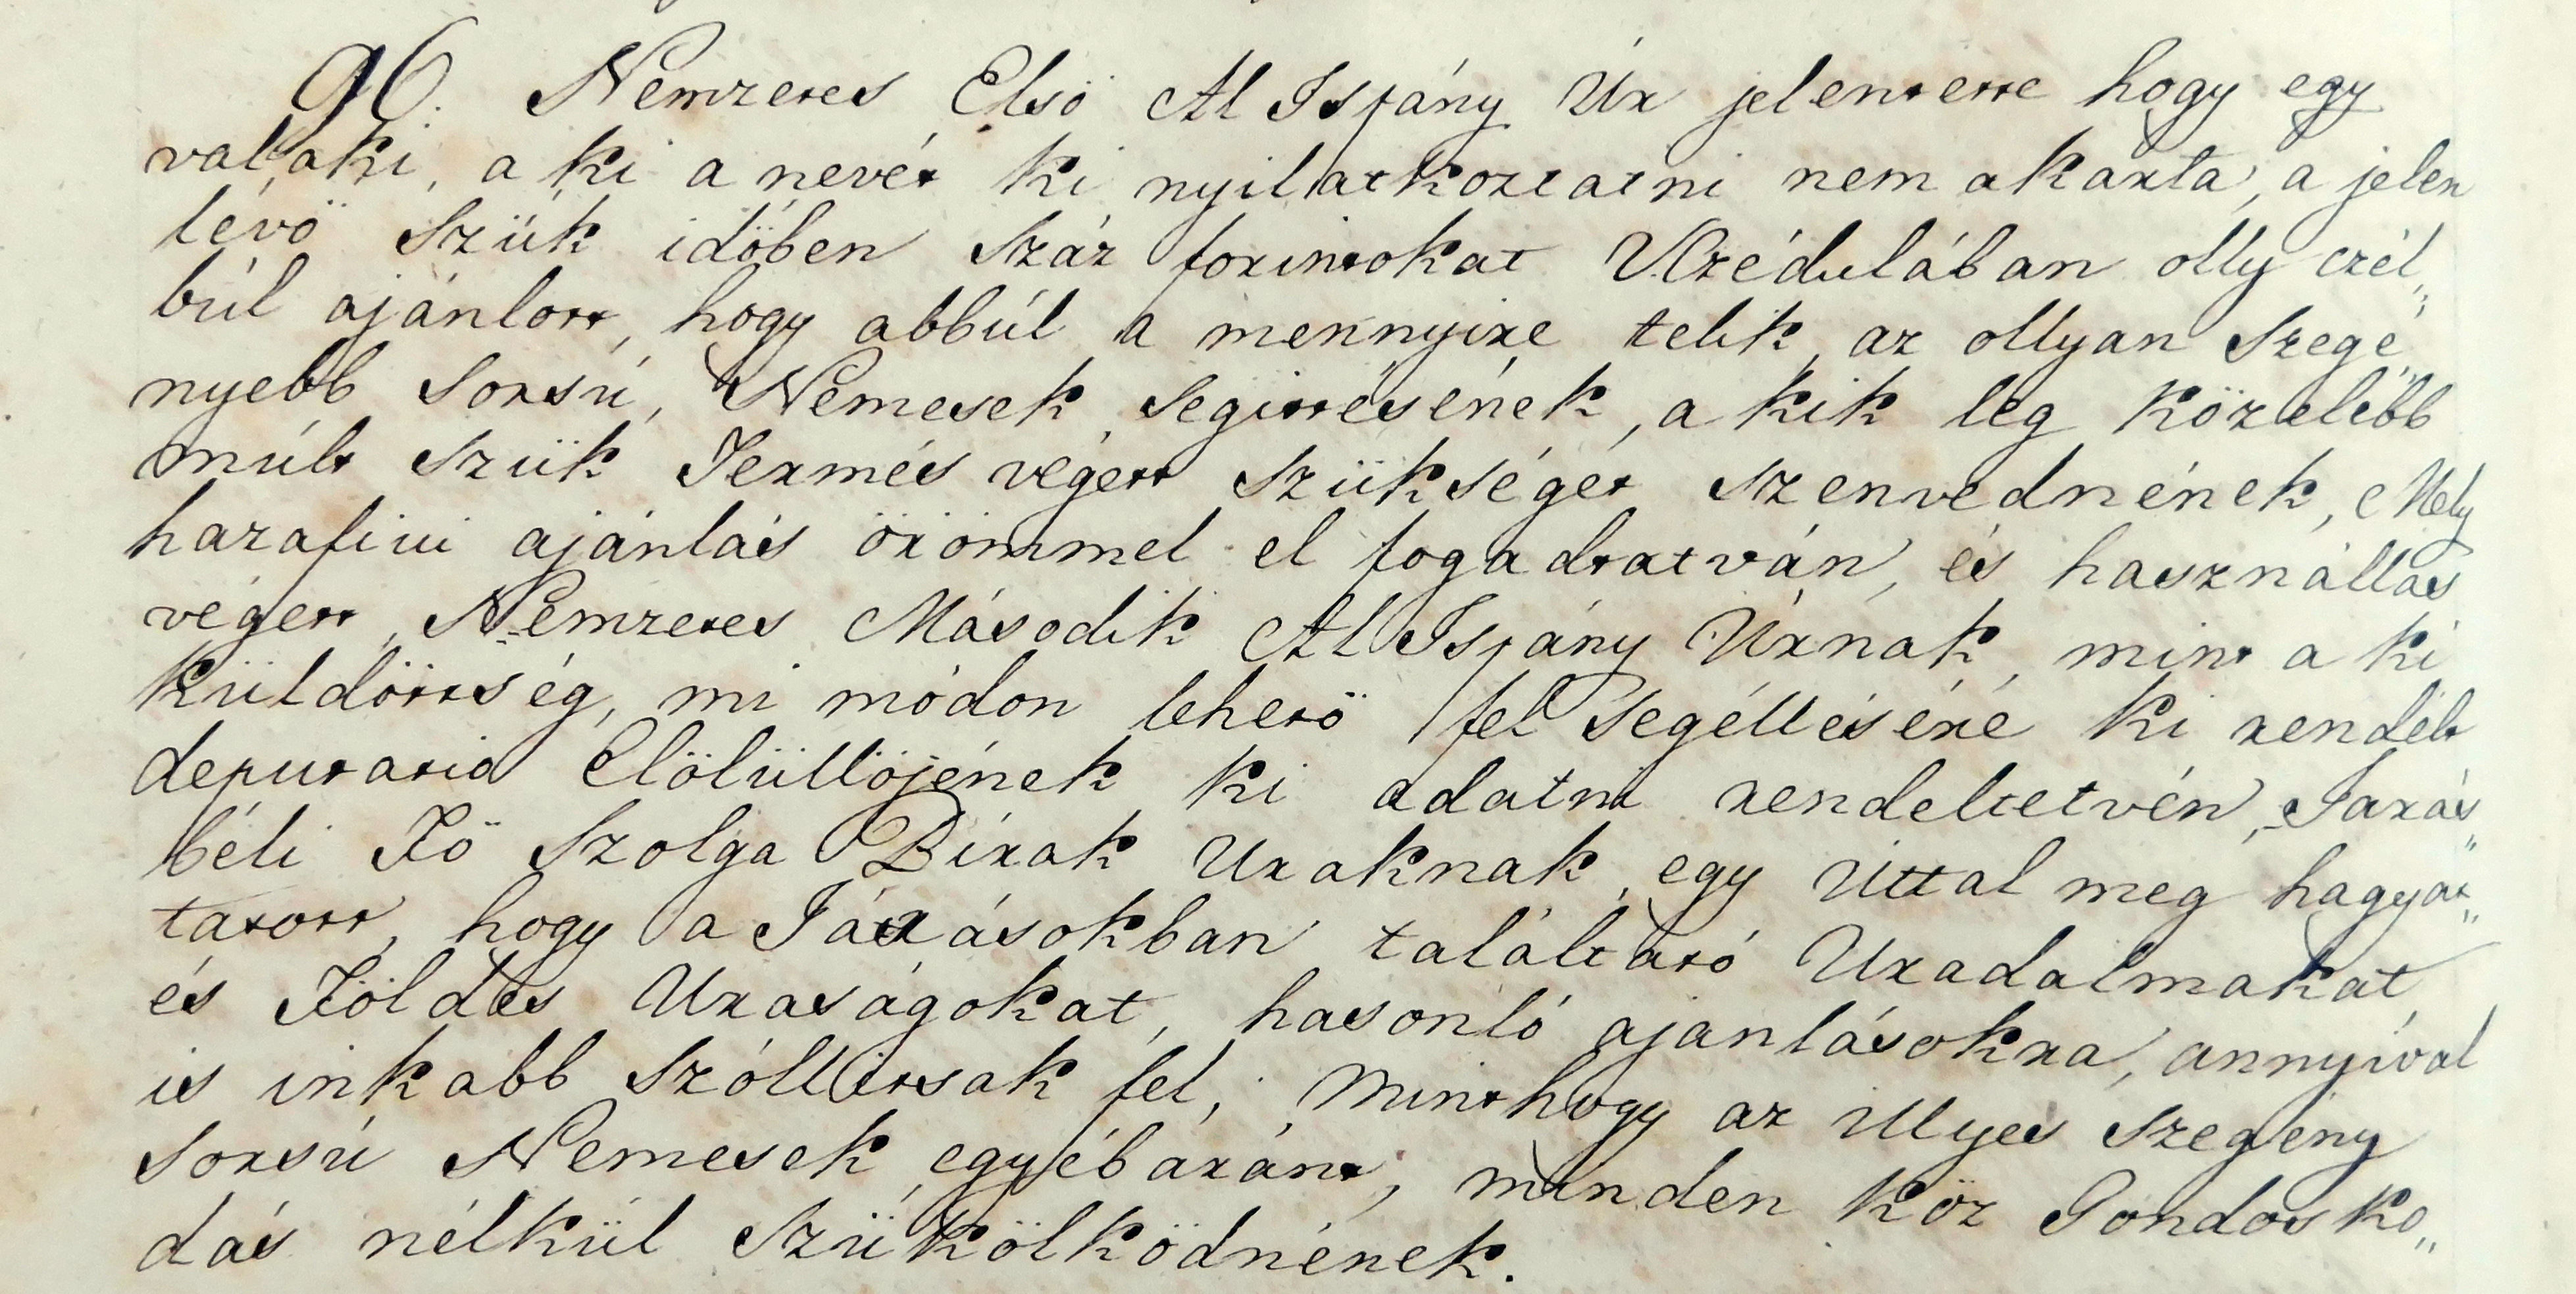 96. Nemzetes Elsö Al Ispány Úr jelentette hogy egy
valaki, a ki a nevét ki nyilatkoztatni nem akarta, a jelen
lévö szük idöben száz forintokat Vczédulában olly czél„
búl ajánlott, hogy abbúl a mennyire telik, az ollyan szegé„
nyebb sorsú, Nemesek segittésének, a kik leg közelébb
múlt szük Termés végett szükségét szenvednének, Mely
hazafiui ajánlás örömmel el fogadtatván, és használlás
végett, Nemzetes Második Al Ispány Úrnak, mint a ki
küldöttség, mi módon lehetö fel segéllésére ki rendélt
deputatio Elölüllöjének ki adatni rendeltetvén, Járás„
béli Fö Szolga Birák Uraknak, egy úttal meg hagyat„
tatott, hogy a Járásokban találtató Uradalmakat,
és Földes Uraságokat, hasonló ajánlásokra, annyival
is inkabb szóllitsak fel, Minthogy az illyes szegény
sorsú Nemesek egyébaránt, minden köz Gondosko„
dás nélkül szükölködnének.